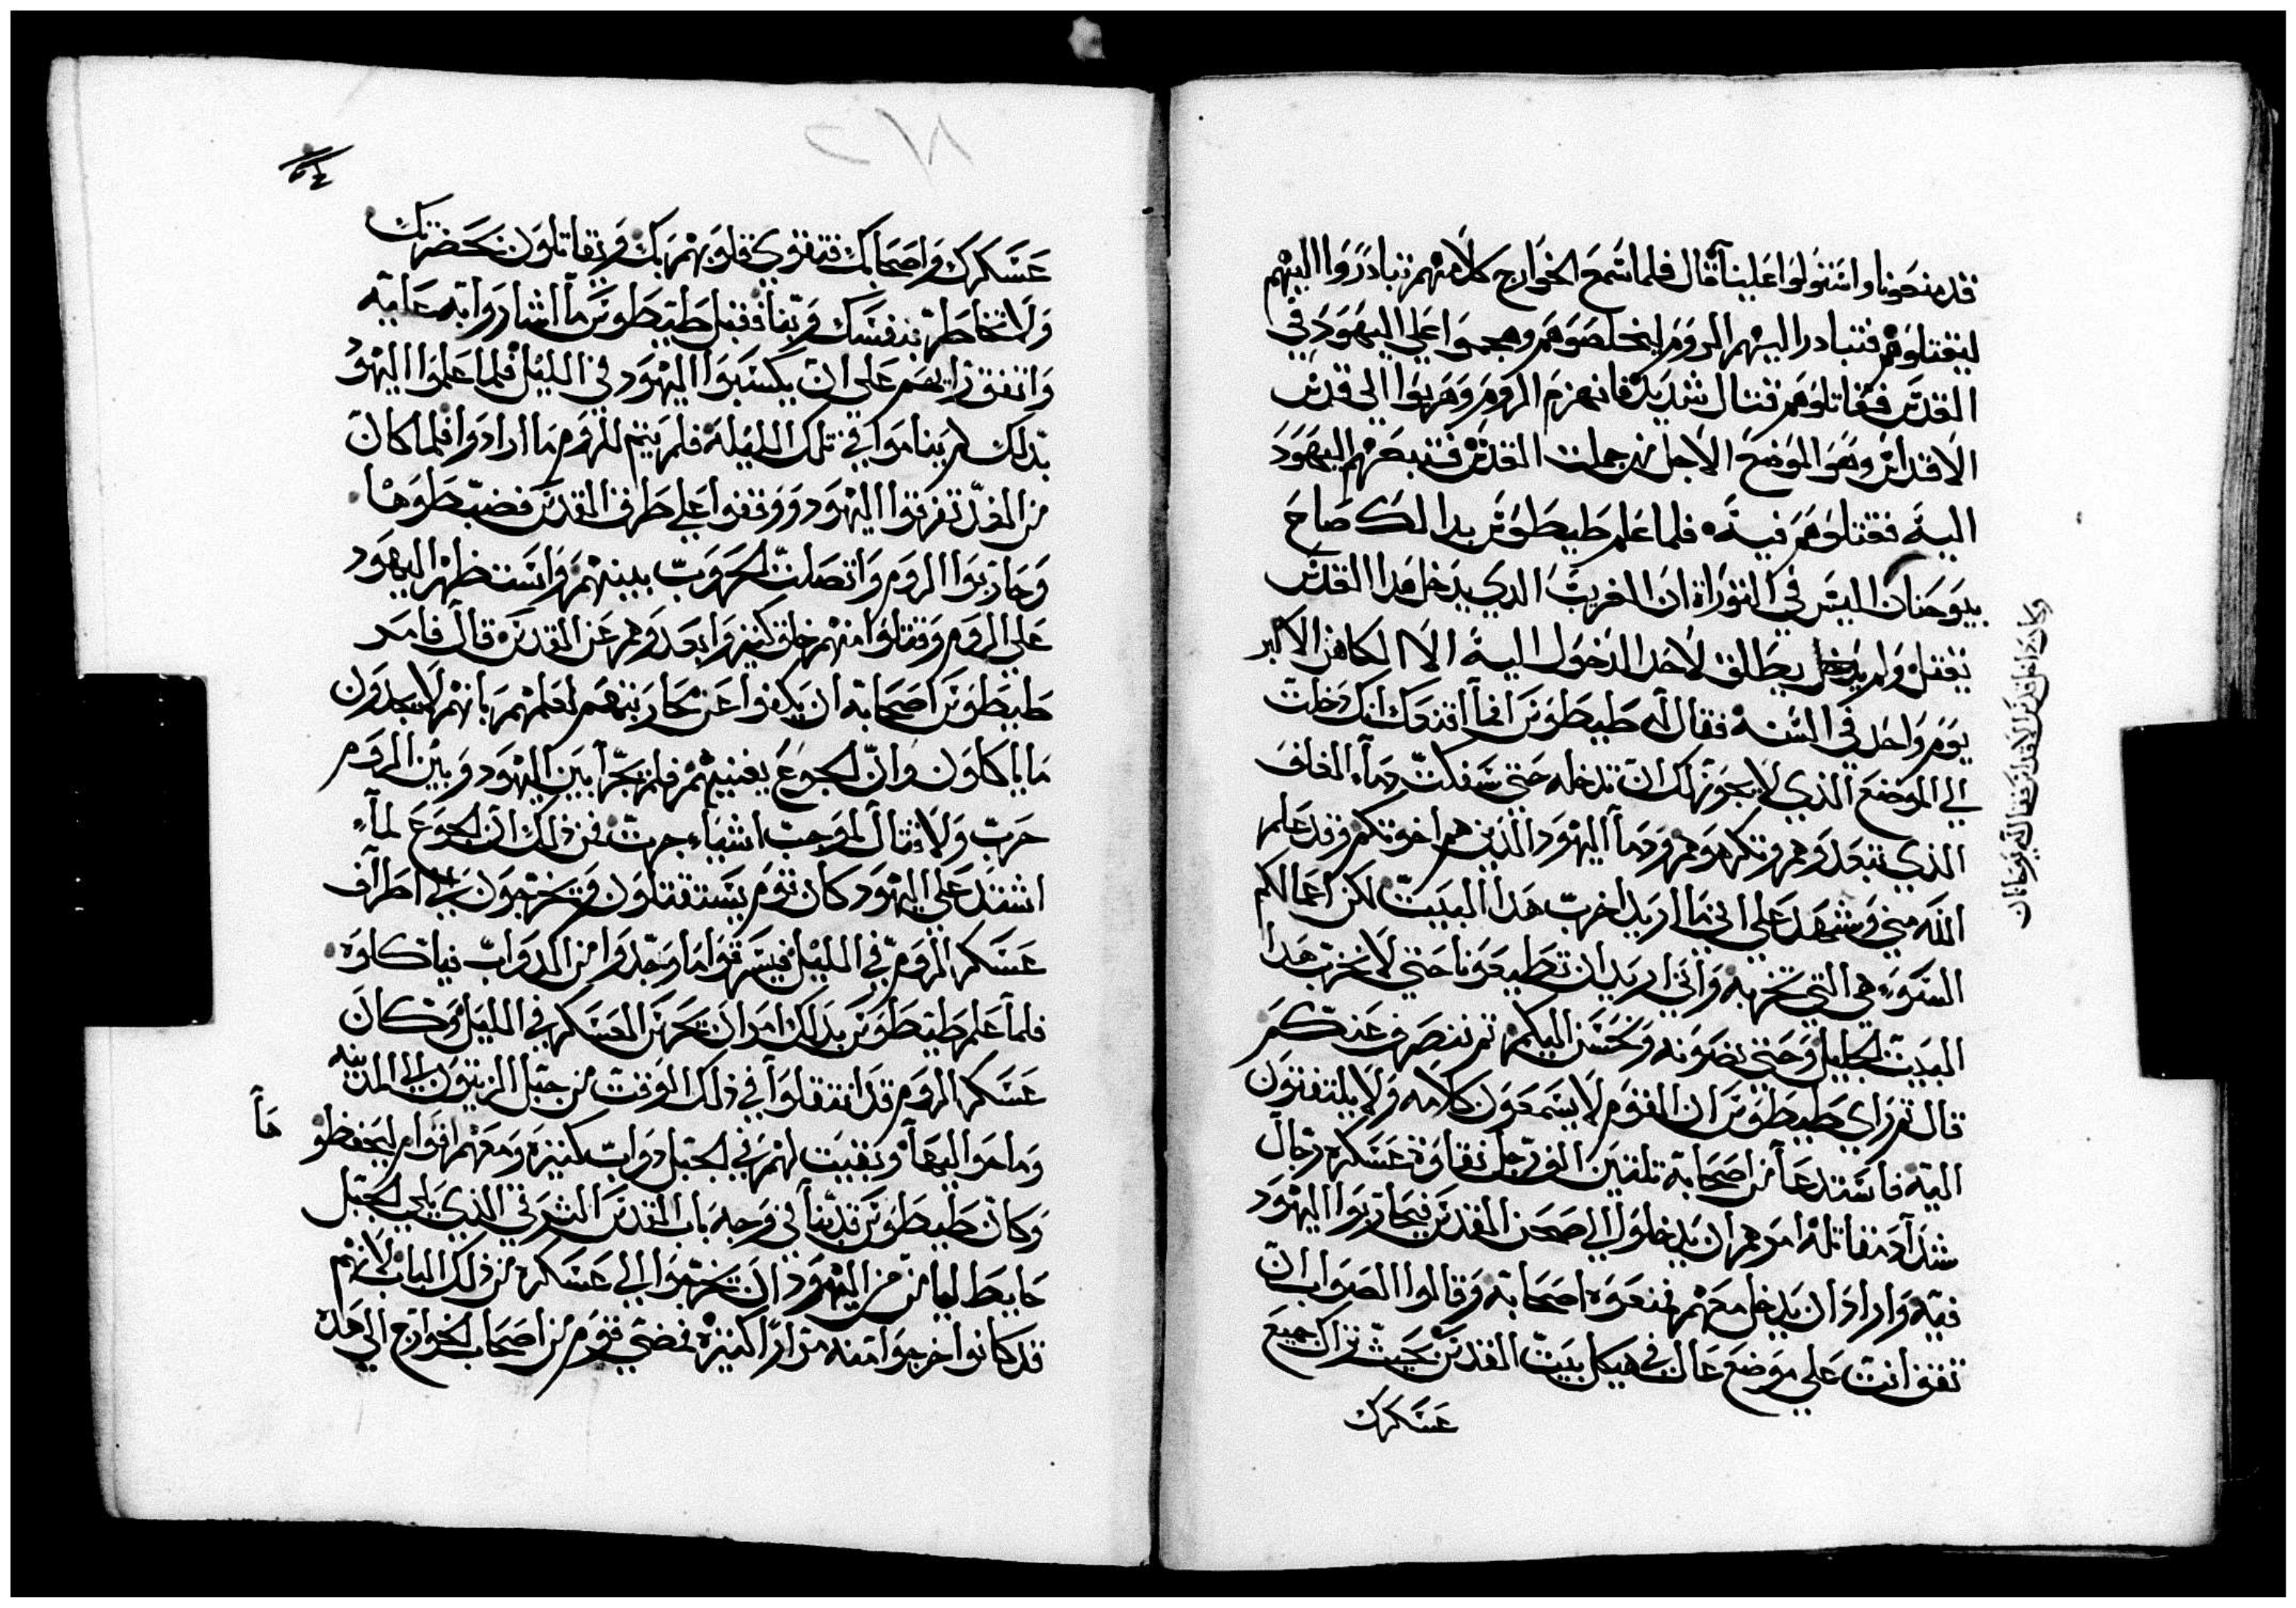 قد منعونا واستولوا علينا قال فلما سمع الخوارج كلامهم تبادروا اليهم
ليقتلوهم فتبادرا اليهم الروم ليخلصوهم وهجموا علي اليهود في
القدس فقاتلوهم قتال شديد فانهزم الروم وهربوا الي قدس
الاقداس وهو الموضع الاجل من جملت القدس فتبعهم اليهود
اليه فقتلوهم فيه فلما علم طيطوس بدالك صاح
بيوحنان اليس في التوراة ان الغريب الدي يدخل هدا القدس
يقتل ولم يطلق لاحد الدخول اليه الا الكاهن الاكبر
يوم واحد في السنه فقال له طيطوس انك دخلت
الي الموضع الذي لا يجوز لك ان تدخله حتي سفكت دمآء الغلف
الذي تبعدوهم وتكرهوهم ودمآ اليهود الذين هم اخوتكم وقد علم
الله مني وشهد علي اني ما اريد اخرب هدا البيت لكن اعمالكم
السوء هي التي تخربه واني اريد ان تطيعونا حتي لا نخرب هدا
البيت الجليل وحتي نصونه ونحسن اليكم ثم ننصرف عنكم
قال ثم راي طيطوس ان القوم لا يسمعون كلامه ولا يلتفتون
اليه فاستدعا من اصحابه تلتين الف رجل نقاوة عسكره رجال
شداد مقاتله امرهم ان يدخلوا الي صحن القدس فيحاربوا اليهود
فيه واراد ان يدخل معهم فمنعوه اصحابه وقالوا الصواب ان
تقف انت علي موضع عال في هيكل بيت القدس بحيث تراك جميع
عسكرك
وكان داخل قدس الاقداس فقال له يوحانان
عسكرك واصحابك فتقوي قلوبهم بك ويقاتلون بحضرتك
ولا تخاطر بنفسك وبنا فقبل طيطوس ما اشاروا به عليه
واتفق رايهم علي ان يكسبوا اليهود في الليل فلما علموا اليهود
بذلك لم يناموا في تلك الليله فلم يتم للروم ما ارادوا فلما كان
من الغد تفرقوا اليهود ووقفوا علي طرف القدس فضبطوها
وحاربوا الروم واتصلت الحروب بينهم واستظهر اليهود
علي الروم وقتلوا منهم خلق كتير وابعدوهم عن القدس قال فامر
طيطوس اصحابه ان يكفوا عن محاربتهم لعلمهم بانهم لا يجدون
ما ياكلون وان الجوع يفنيهم فلم يجر بين اليهود وبين الروم
حرب ولا قتال لموجب اشياء جرت فمن ذلك ان الجوع لمآء
اشتد علي اليهود كان قوم يستقتلون ويخرجون علي اطراف
عسكر الروم في الليل فيسرقوا ما وجدوا من الدواب فياكلوه
فلما علم طيطوس بذلك امر ان تحرس العسكر في الليل وكان
عسكر الروم قد انتقلوا في ذلك الوقت من جبل الزيتون الي المدينه
وما هو اليها وبقيت لهم في الجبل دواب كتيره ومعهم اقوام ليحفظو
ها
وكان طيطوس قد بنا في وجه باب القدس الشرقي الذي يلي الجبل
حايط ليامن من اليهود ان يخرجوا الي عسكره من ذلك الباب لانهم
قد كانوا خرجوا منه مرارًا كتيره فمضي قوم من اصحاب الخوارج الي هده